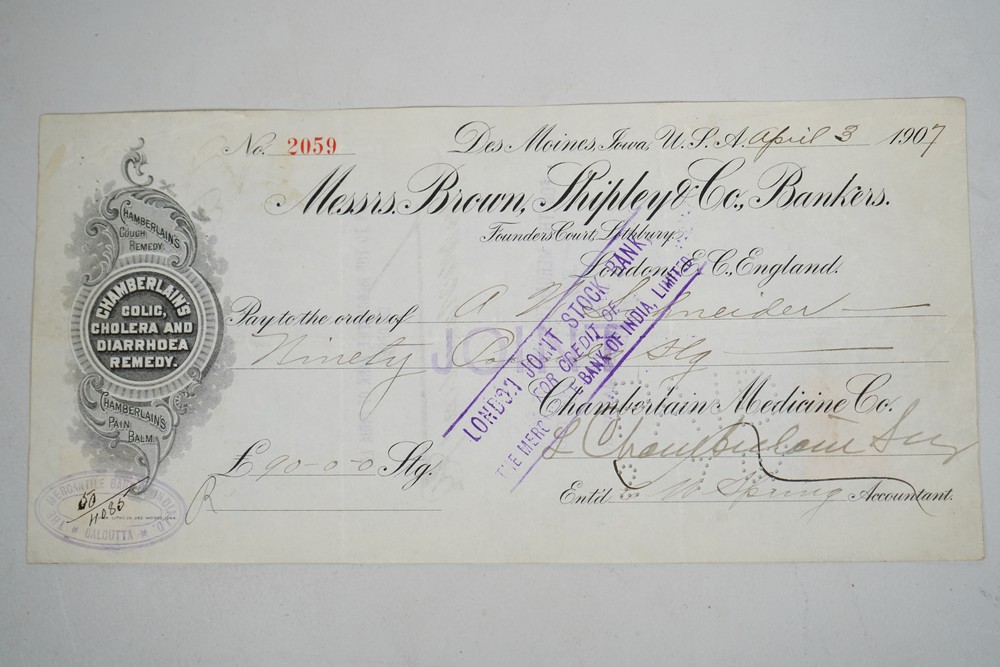 No. 2059
Des Moines, Iowa, U.S.A. April 3 1907
Messrs. Brown, Shipley & Co., Bankers.
Founders Court, Lothbury.
London, E.C, England.
Pay to the order of A W Schneider
Ninety Pounds Stg
Chamberlain Medicine Co.
L Chamberlain
£90-0-0 Stg.
Ent'd W Spring Accountant.
CHAMBERLAIN'S
COUGH
REMEDY
CHAMBERLAIN'S
COLIC,
CHOLERA AND
DIARRHOEA
REMEDY.
CHAMBERLAIN'S
PAIN
BALM
LONDON JOINT STOCK BANK,
FOR CREDIT OF
THE MERCANTILE BANK OF INDIA, LIMITED
THE MERCANTILE BANK OF INDIA LD.
CALCUTTA